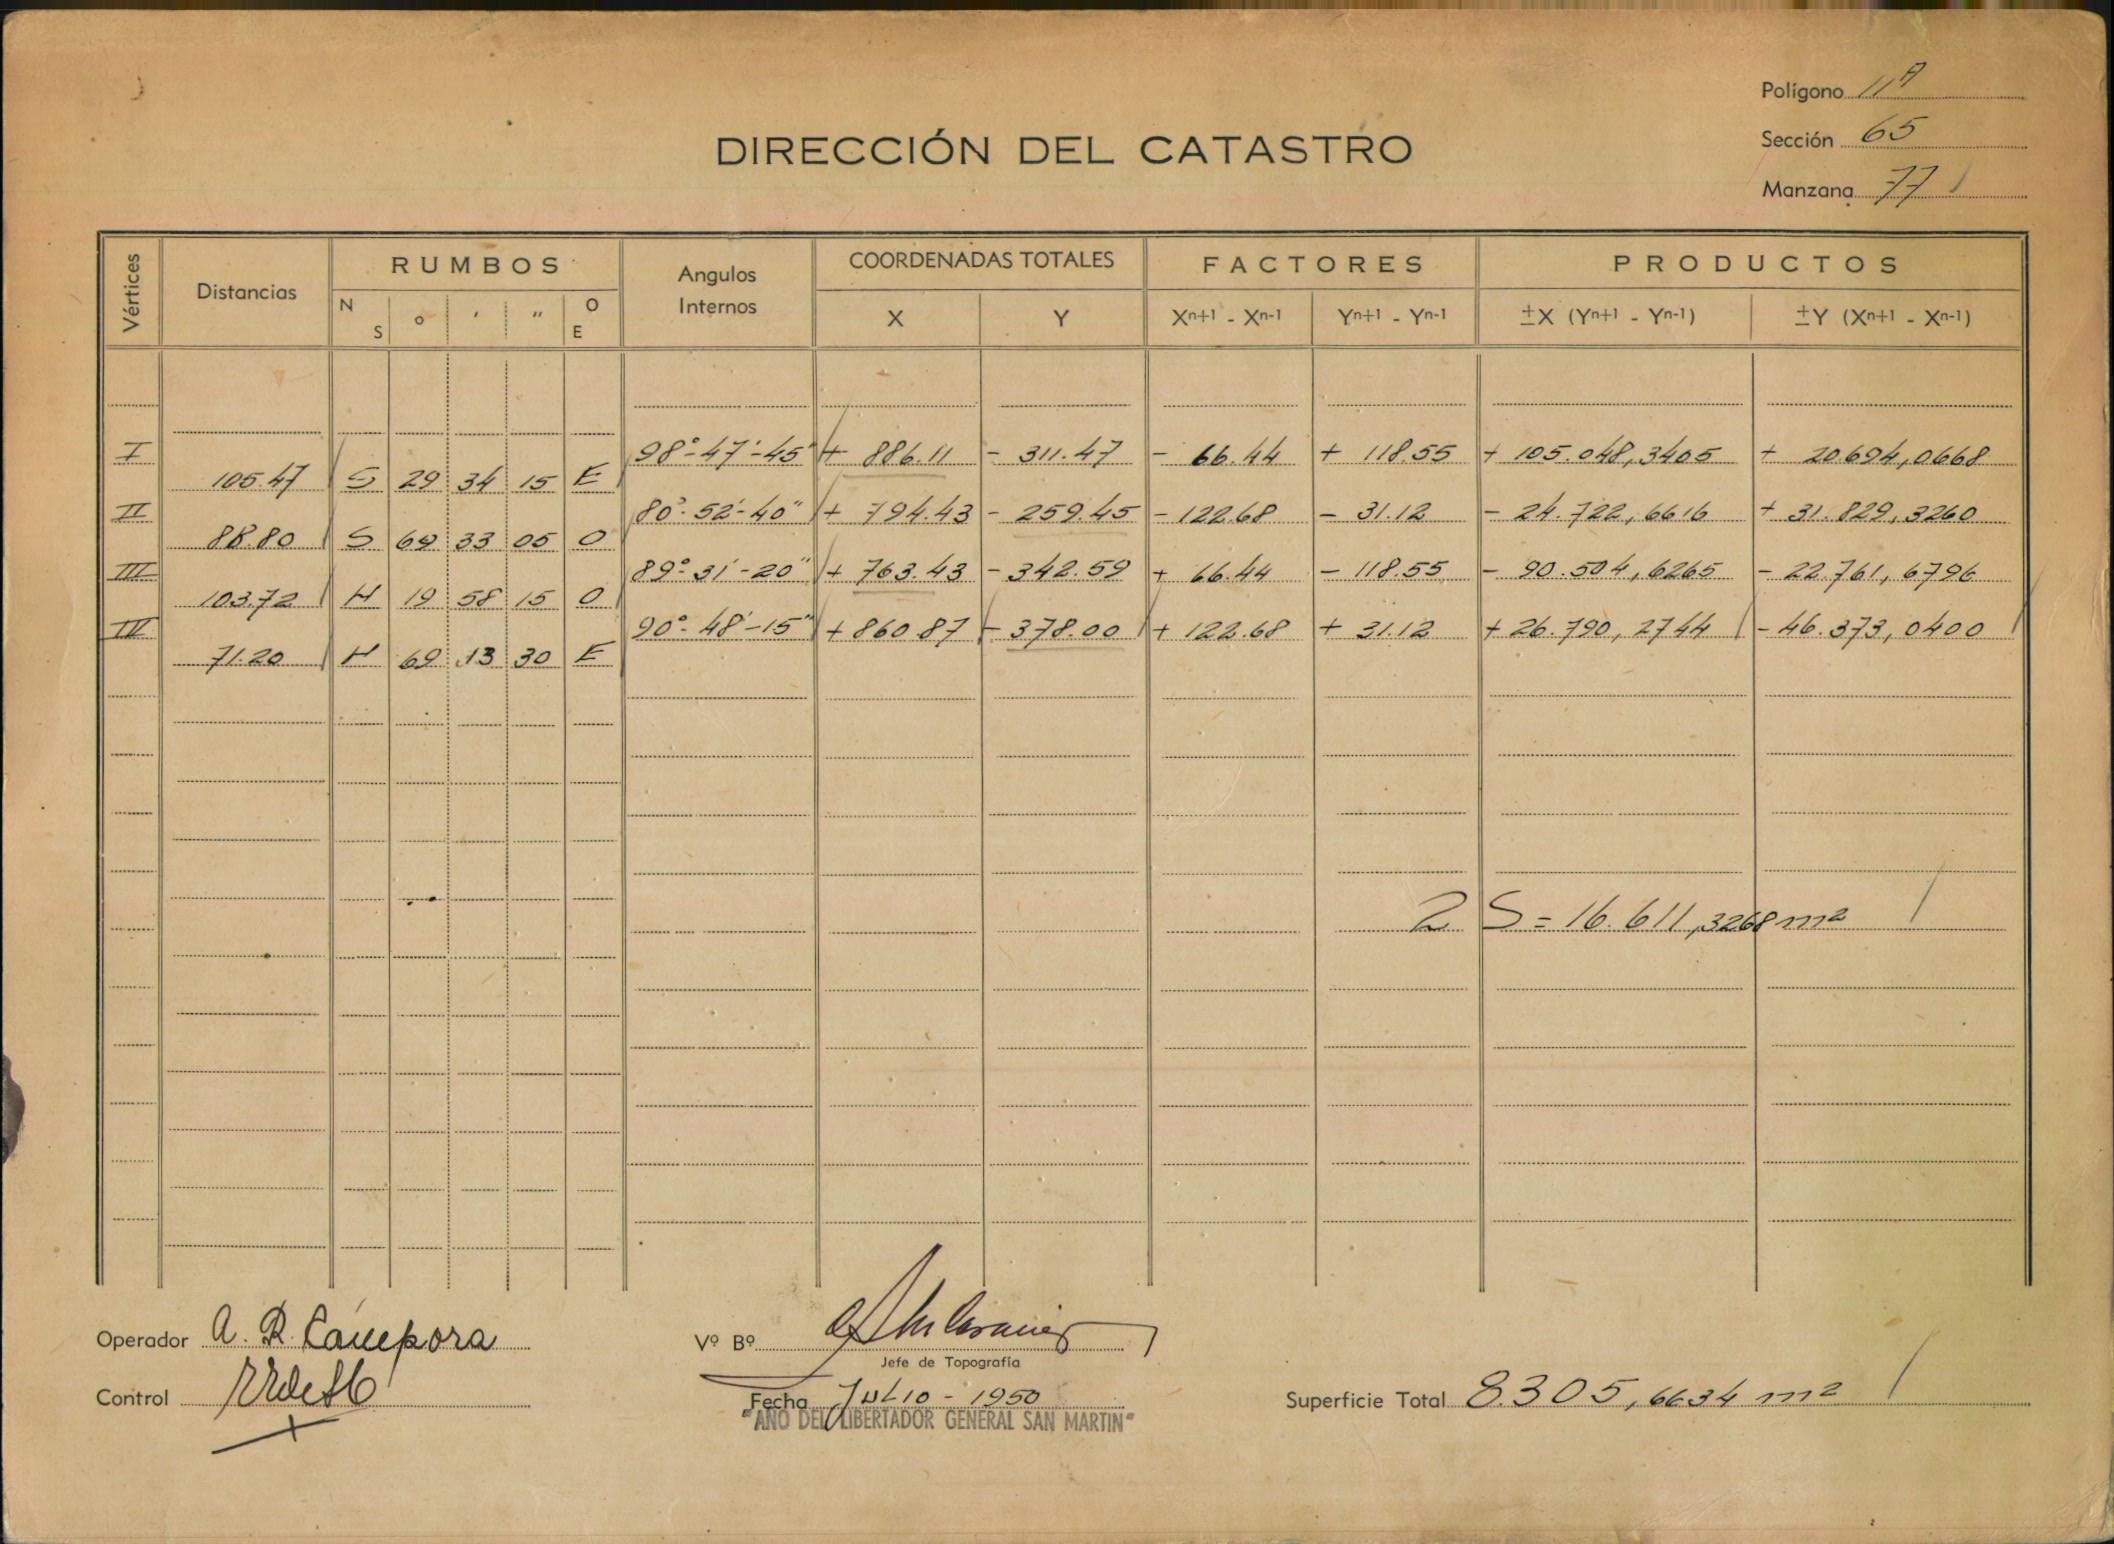 Polígono 11A
Sección 65
Manzana 77
DIRECCIÓN DEL CATASTRO
Vértices Distancias RUMBOS Angulos Internos COORDENADAS TOTALES FACTORES PRODUCTOS
N S ° ' " O E X Y Xn+1 - Xn-1 Yn+1 - Yn-1 ±X (Yn+1 - Yn-1) ±Y (Xn+1 - Xn-1)
I 98°-47'-45" + 886.11 - 311.47 - 66.44 + 118.55 + 105.048,3405 + 20.694,0668
105.47 S 29 34 15 E
II 80°-52'-40" + 794.43 - 259.45 - 122.68 - 31.12 - 24.722,6616 + 31.829,3260
88.80 S 69 33 05 O
III 89°-31'-20" + 763.43 - 342.59 + 66.44 - 118.55 - 90.504,6265 - 22.761,6796
103.72 N 19 58 15 O
IV 90°-48'-15" + 860.87 - 378.00 + 122.68 + 31.12 + 26.790,2744 - 46.373,0400
71.20 N 69 13 30 E
2 S = 16.611,3268 m²
Operador A. R. Cámpora
Vº Bº
Jefe de Topografía
Control
Fecha Julio - 1950
"AÑO DEL LIBERTADOR GENERAL SAN MARTIN"
Superficie Total 8.305,6634 m²